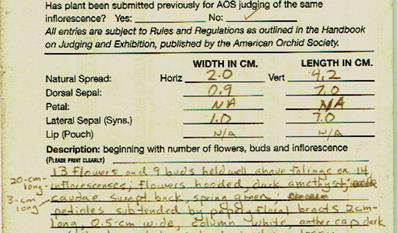 Has plant been submitted previously for AOS judging of the same
inflorescence? Yes: No: ✓
All entries are subject to Rules and Regulations as outlined in the Handbook
on Judging and Exhibition, published by the American Orchid Society.
WIDTH IN CM. LENGTH IN CM.
Natural Spread: Horiz 2.0 Vert 4.2
Dorsal Sepal: 0.9 7.0
Petal: NA NA
Lateral Sepal (Syns.) 1.0 7.0
Lip (Pouch) N/A N/A
Description: beginning with number of flowers, buds and inflorescence
(PLEASE PRINT CLEARLY) 13 flowers and 9 buds held well above foliage on 14
20-cm-long inflorescences; flowers hooded, dark amethyst,
3-cm long caudae swept back, spring green,
subtended by papery floral bracts 2cm-
long, 0.5-cm wide, column white, anther cap dark